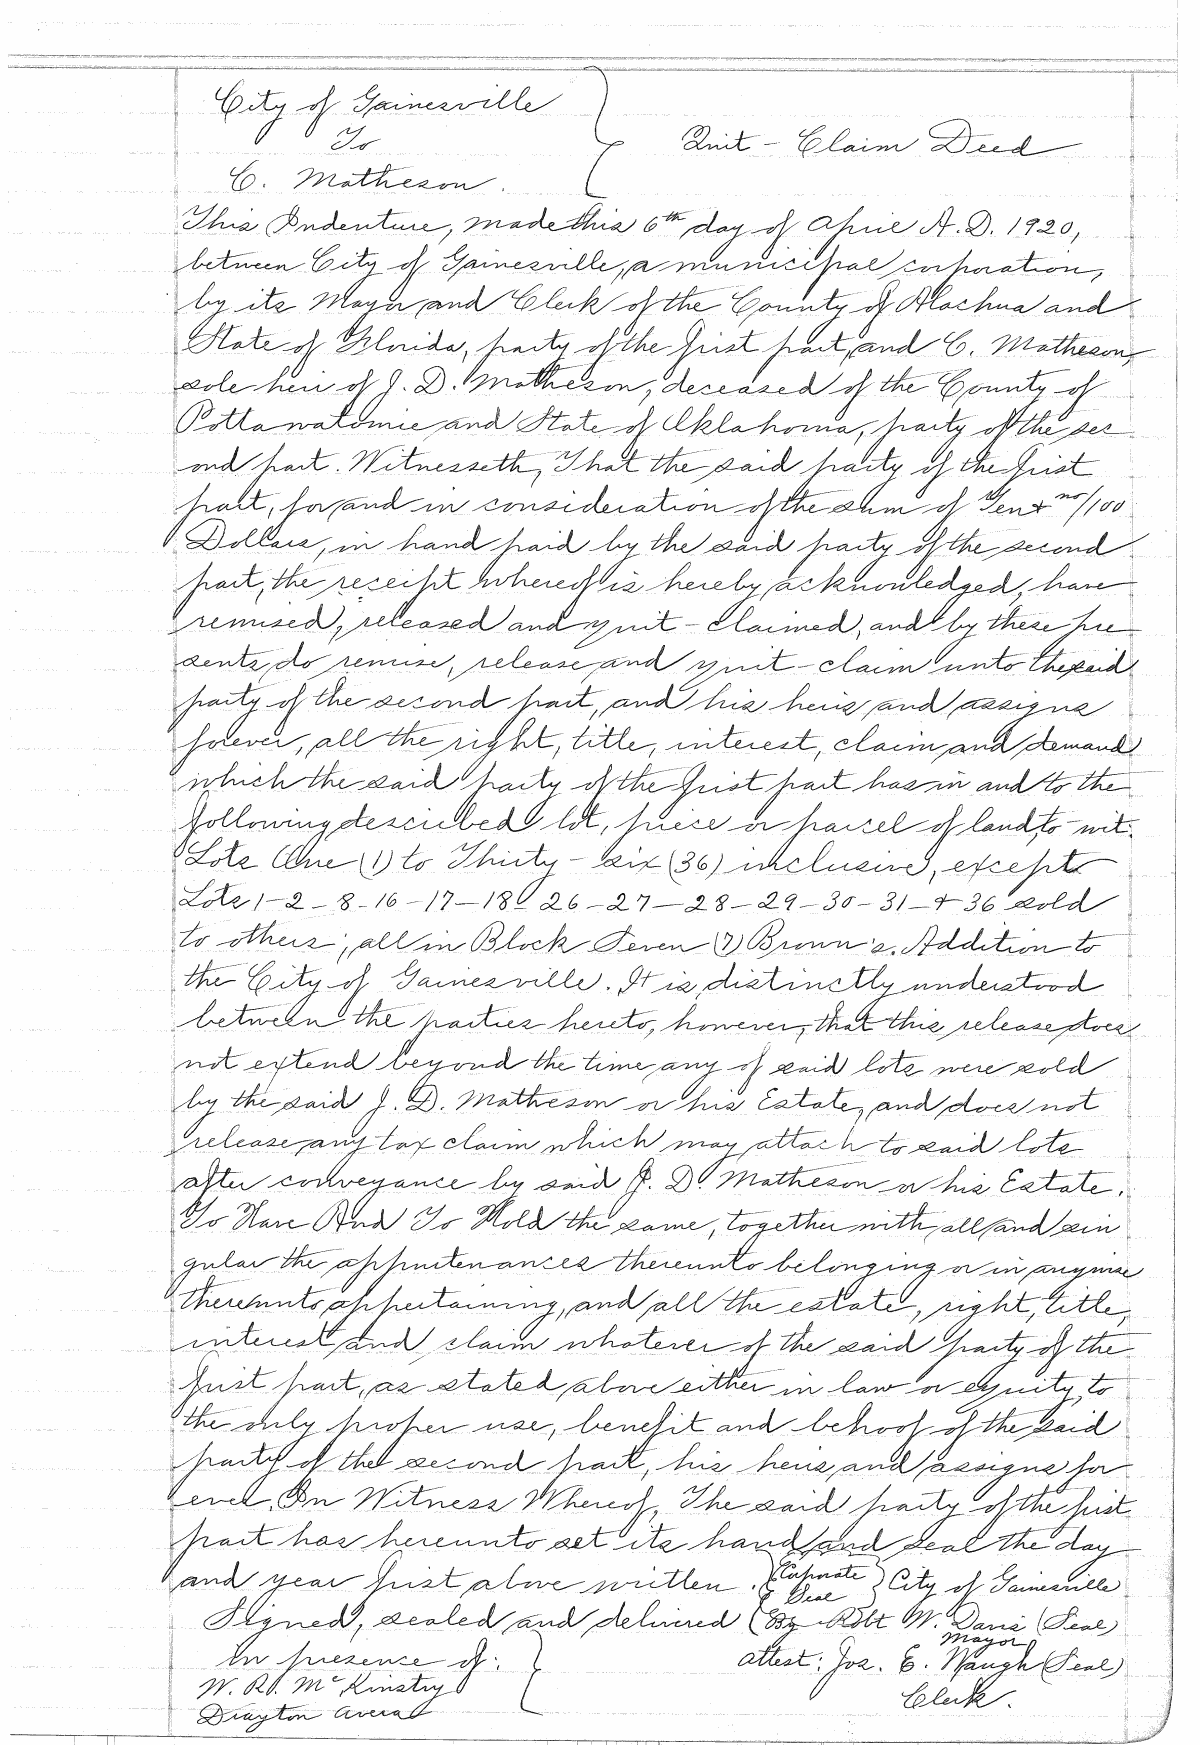 City of Gainesville
To
Quit - Claim Deed
C. Matheson.
This Indenture, made this 6th day of April A.D. 1920,
between City of Gainesville, a municipal corporation,
by its Mayor and Clerk of the County of Alachua and
State of Florida, party of the first part, and C. Matheson,
sole heir of J. D. Matheson, deceased of the County of
Pottawatomie and State of Oklahoma, party of the sec
ond part. Witnesseth, That the said party of the first
part, for and in consideration of the sum of Ten + no/100
Dollars, in hand paid by the said party of the second
part, the receipt whereof is hereby acknowledged, have
remised, released and quit-claimed, and by these pre
sents, do remise, release and quit-claim unto the said
party of the second part, and his heirs and assigns
forever, all the right, title, interest, claim and demand
which the said party of the first part has in and to the
following described lot, piece or parcel of land, to-wit:
Lots One (1) to Thirty-six (36) inclusive, except
Lots 1-2-8-16-17-18 26-27-28-29-30-31-+ 36 sold
to others; all in Block Seven (7) Brown's Addition to
the City of Gainesville. It is distinctly understood
between the parties hereto, however, that this release does
not extend beyond the time any of said lots were sold
by the said J. D. Matheson or his Estate, and does not
release any tax claim which may attach to said lots
after conveyance by said J. D. Matheson or his Estate.
To Have And To Hold the same, together with all and sin
gular the appurtenances thereunto belonging or in anywise
thereunto appertaining, and all the estate, right, title,
interest and claim whatever of the said party of the
first part, as stated above either in law or equity, to
the only proper use, benefit and behoof of the said
party of the second part, his heirs and assigns for
ever. In Witness Whereof, The said party of the first
part has hereunto set its hand and seal the day
and year first above written. (Corporate Seal) City of Gainesville
Signed, sealed and delivered (By Robt W. Davis (Seal)
Mayor
In presence of: Attest: Jos. E. Waugh (Seal)
W. R. McKinstry Clerk.
Drayton Avera